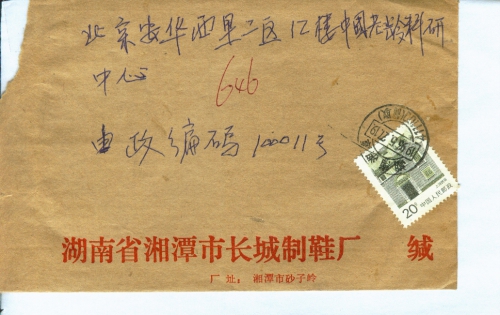 北京安华西里二区12楼中国老龄科研
中心
646
邮政编码 100011号
20分
中国人民邮政
湖南省湘潭市长城制鞋厂 缄
厂址：湘潭市砂子岭